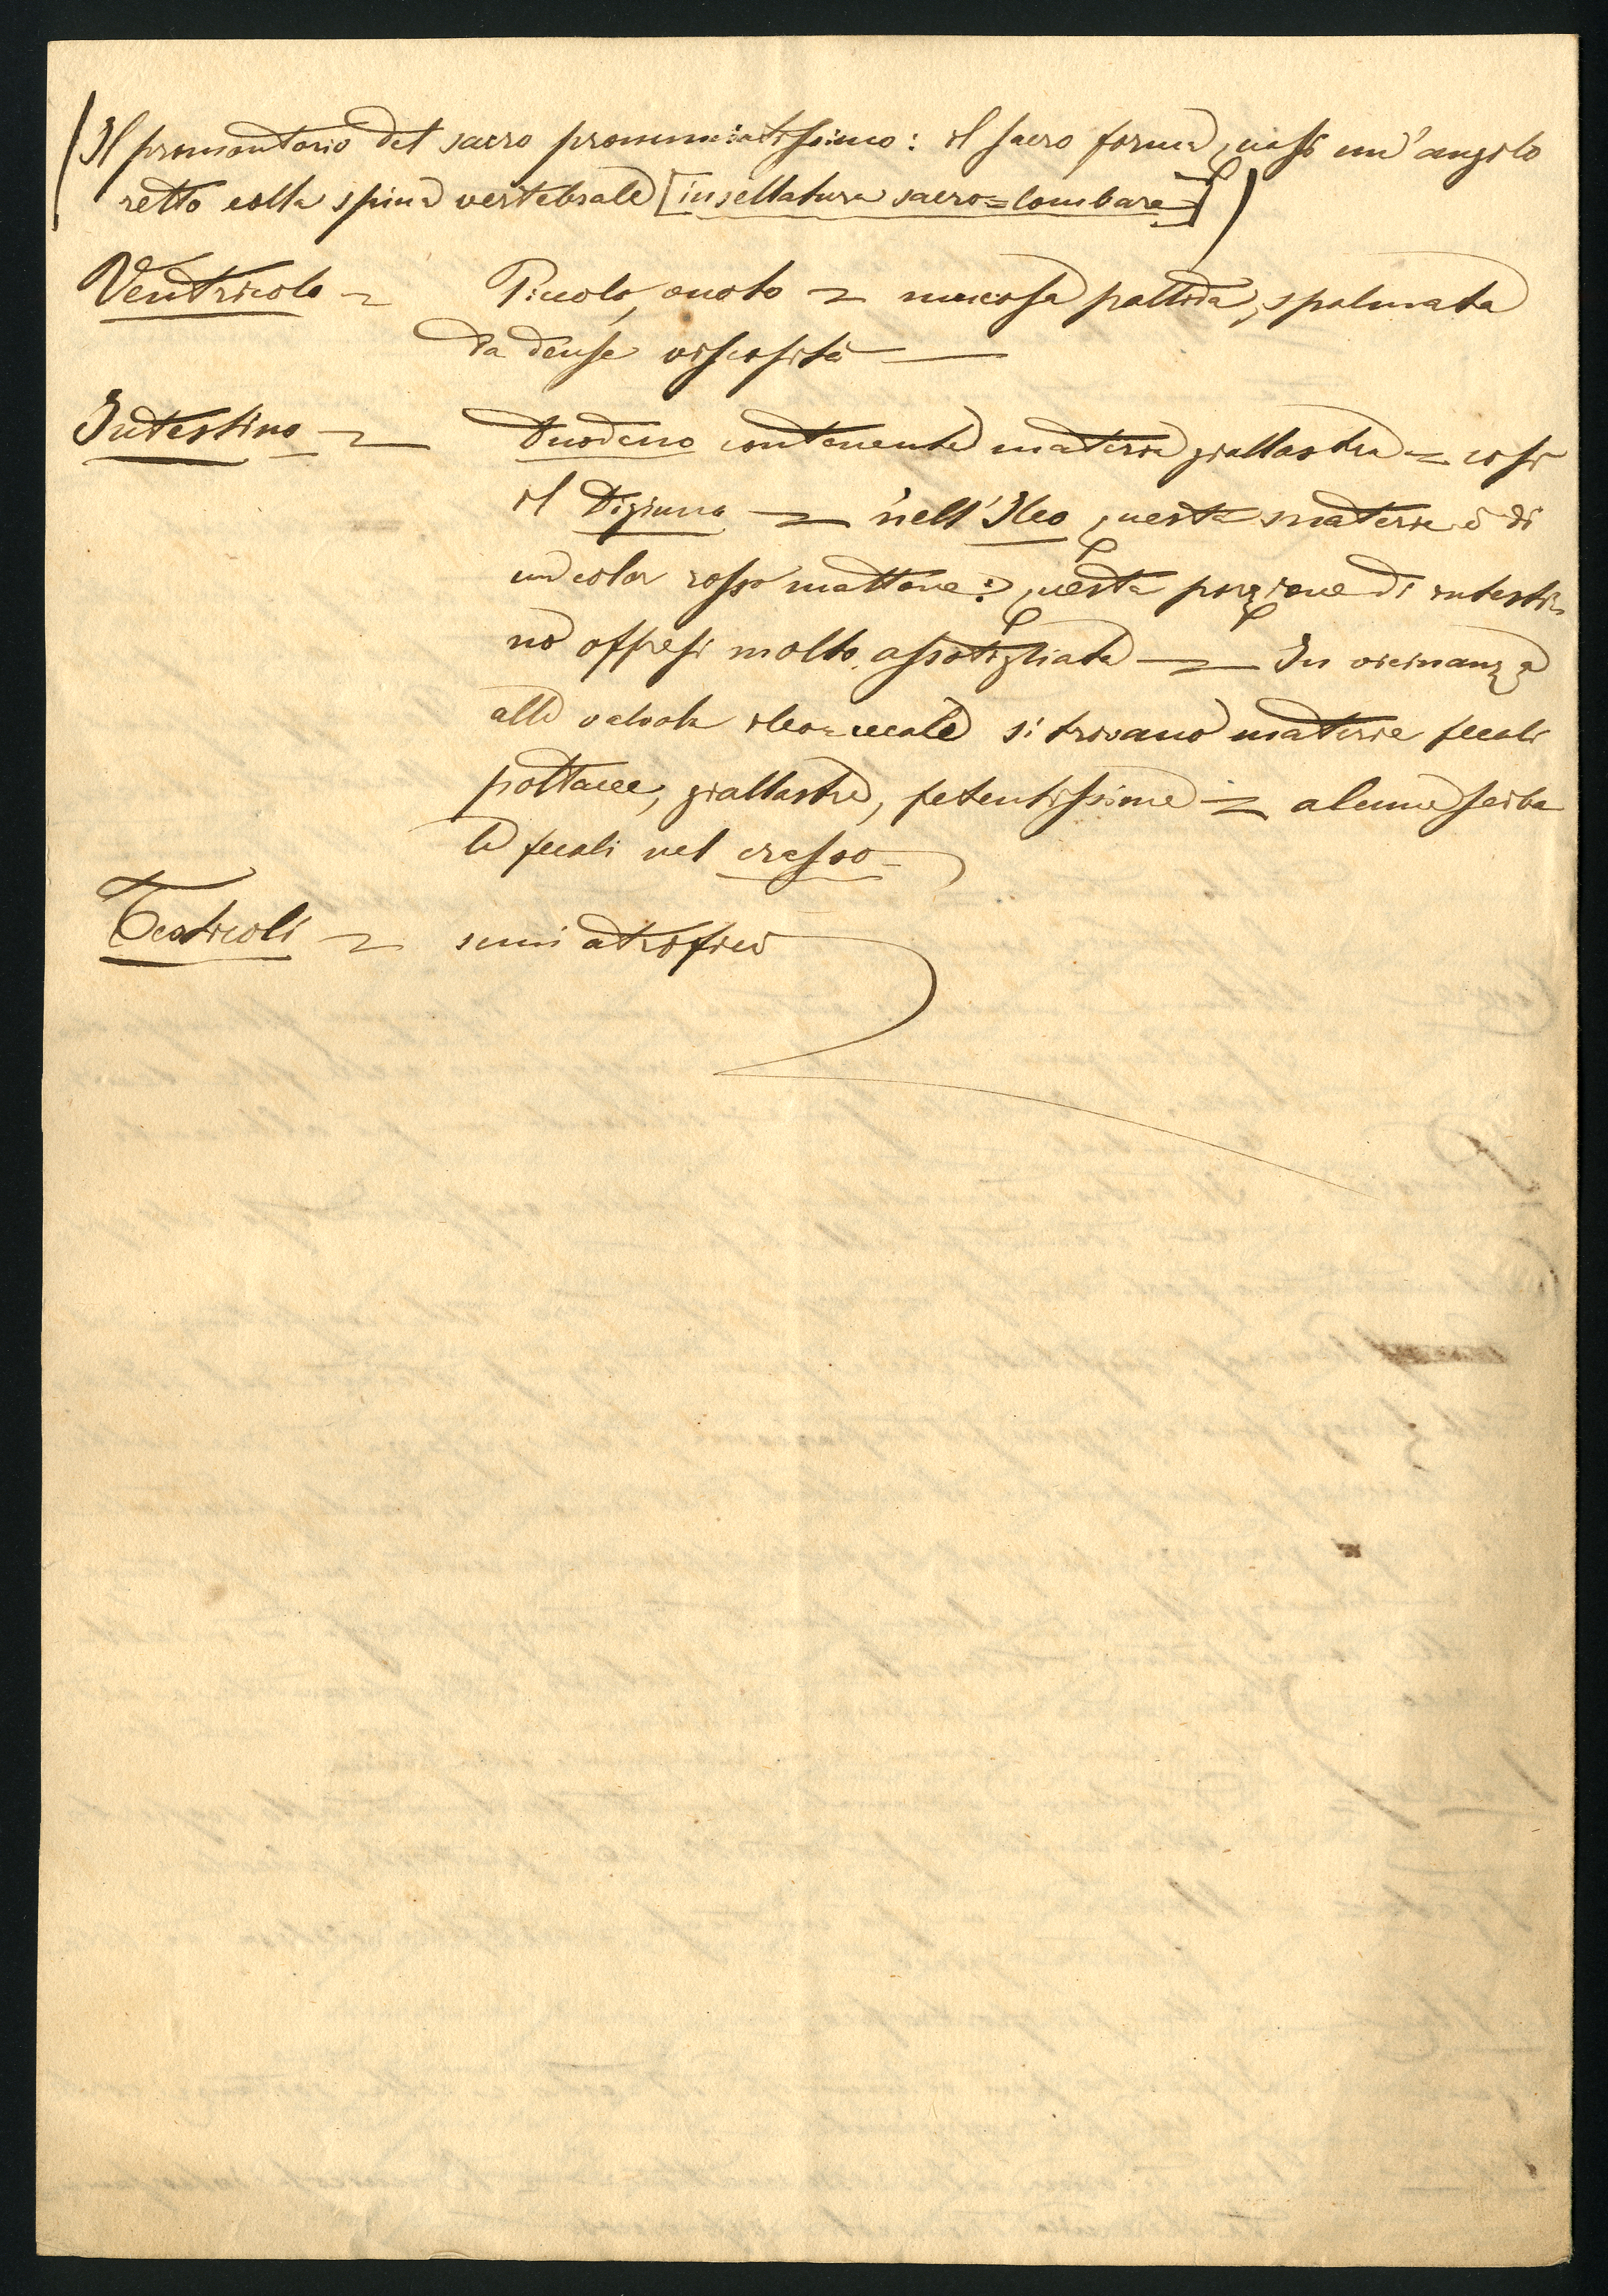 (Il promontorio del sacro pronunciatissimo: il sacro forma quasi un'angolo
retto colla spina vertebrale [insellatura sacro=lombare])
Ventricolo = Piccolo, vuoto = mucosa pallida, spalmata
da dense viscosità —
Intestino = Duodeno contenente materia giallastra = così
il Digiuno = nell'Ileo questa materia è di
un color rosso mattone: questa porzione di intesti=
no offresi molto assotigliata — In vicinanza
alla valvola ileo=cecale si trovano materie fecali
poltacee, giallastre, fetentissime = alcune sciba
le fecali nel crasso
Testicoli = semi atrofici